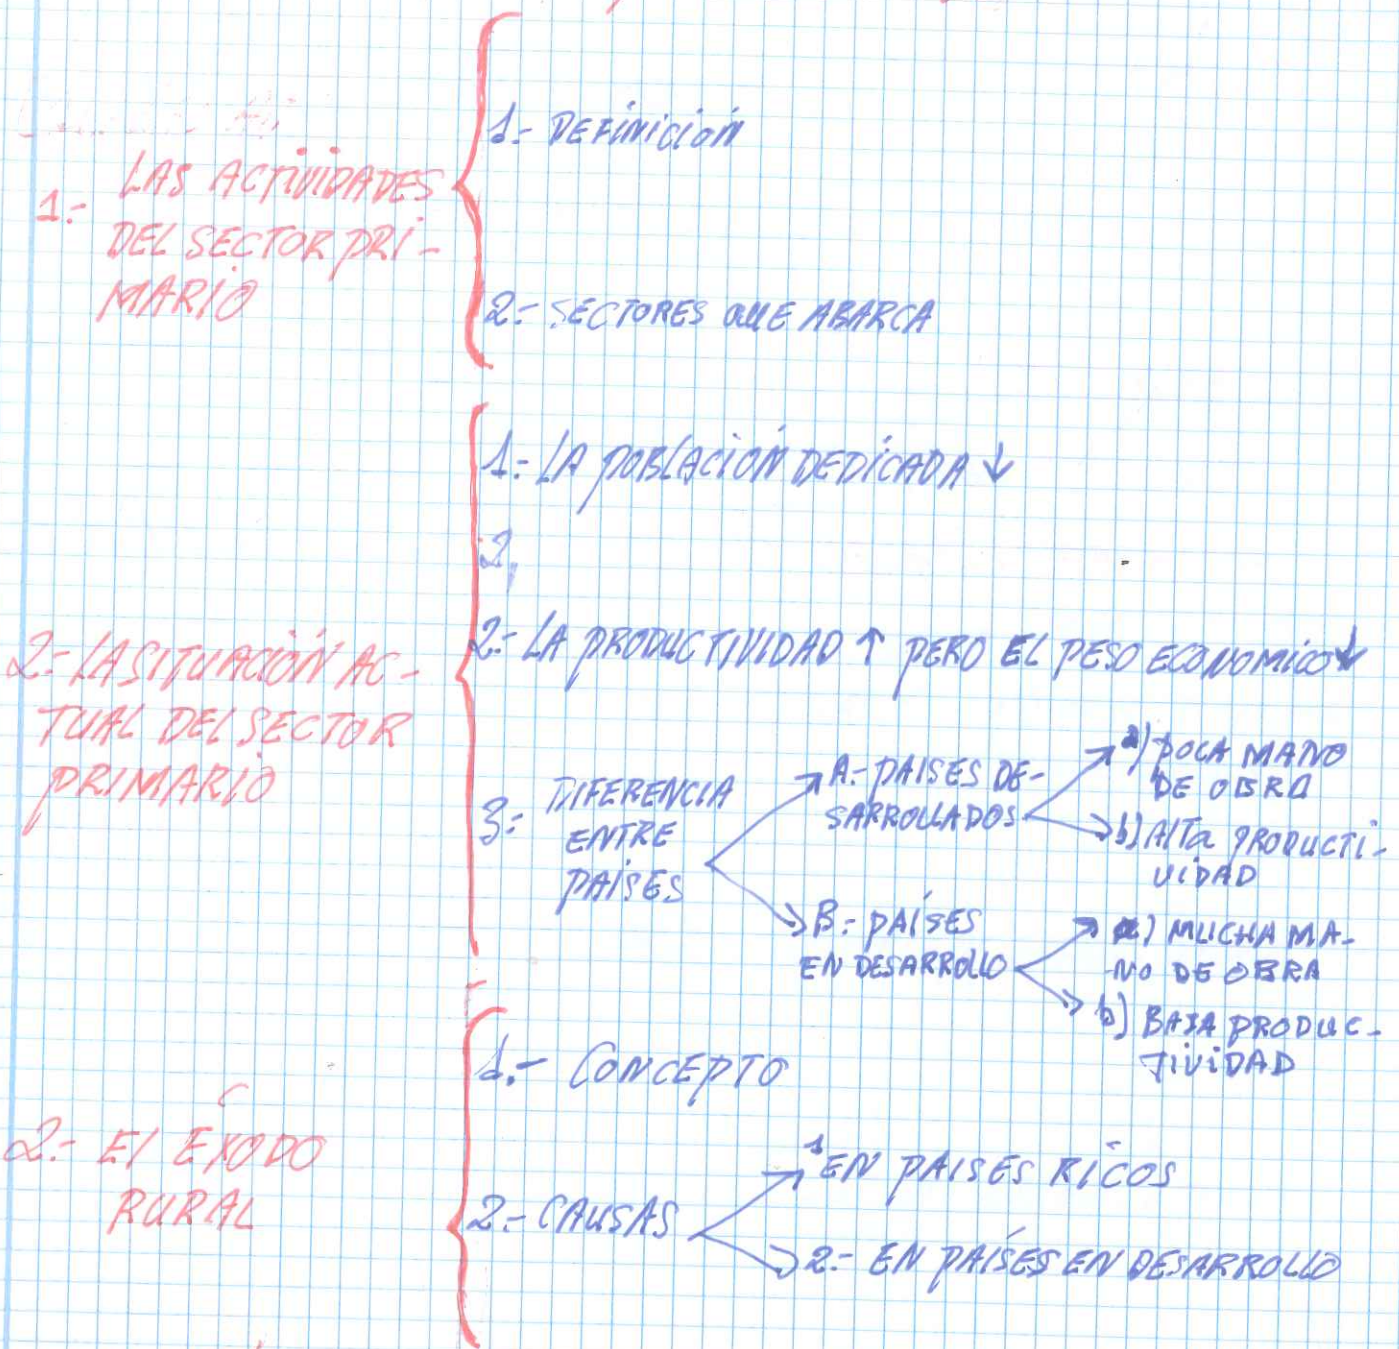 1.- LAS ACTIVIDADES
DEL SECTOR PRI-
MARIO
1.- DEFINICIÓN
2.- SECTORES QUE ABARCA
2.- LA SITUACIÓN AC-
TUAL DEL SECTOR
PRIMARIO
1.- LA POBLACIÓN DEDICADA ↓
2,
2.- LA PRODUCTIVIDAD ↑ PERO EL PESO ECONOMICO ↓
3.- DIFERENCIA
ENTRE
PAÍSES
A.- PAISES DE-
SARROLLADOS
a) POCA MANO
DE OBRA
b) ALTA PRODUCTI-
VIDAD
B.- PAÍSES
EN DESARROLLO
a) MUCHA MA-
NO DE OBRA
b) BAJA PRODUC-
TIVIDAD
2.- El ÉXODO
RURAL
1.- CONCEPTO
2.- CAUSAS
1 EN PAISES RICOS
2.- EN PAÍSES EN DESARROLLO